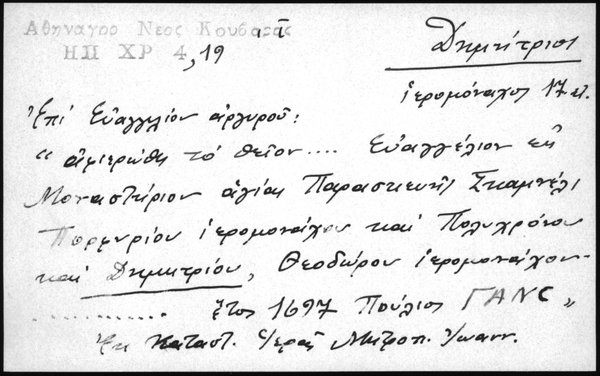 Αθηναγορ Νεος Κουβαρας
ΗΠ ΧΡ 4, 19
Δημήτριος
ἱερομόναχος 17 αἰ.
Ἐπί Εὐαγγελίου ἀργυροῦ:
"ἀφιερώθη τό θεῖον.... Εὐαγγέλιον εἰς
Μοναστήριον ἁγίας Παρασκευῆς Σκαμνέλι
Πορφυρίου ἱερομονάχου καί Πολυχρόνου
καί Δημητρίου, Θεοδώρου ἱερομονάχου-
............... ἔτος 1697 Πούλιος ΓΑΝС"
Ἐκ Καταστ. Ἱερᾶς Μητροπ. Ἰωανν.